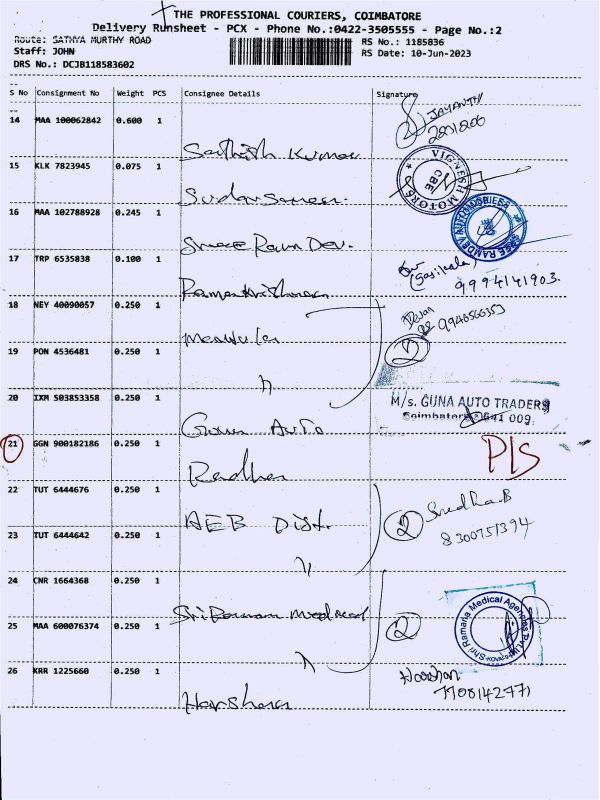 THE PROFESSIONAL COURIERS, COIMBATORE
Delivery Runsheet - PCX - Phone No.:0422-3505555 - Page No.:2
Route: SATHYA MURTHY ROAD
RS No.: 1185836
Staff: JOHN
RS Date: 10-Jun-2023
DRS No.: DCJB118583602
S No Consignment No Weight PCS Consignee Details Signature
14 MAA 100062842 0.600 1
JAYANTHI
Sathish Kumar
15 KLK 7823945 0.075 1
VIGNESH MOTORS
CBE
16 MAA 102788928 0.245 1
SREE RAMDEV AUTOMOBILES
Sree Ram Dev.
17 TRP 6535838 0.100 1
(Sasikala)
9994141903.
Ramakrishnan
18 NEY 40090057 0.250 1
2
19 PON 4536481 0.250 1
"
20 IXM 503853358 0.250 1
M/s. GUNA AUTO TRADERS
Coimbatore 641 009.
Guna Auto
21 GGN 900182186 0.250 1
P/S
Radha
22 TUT 6444676 0.250 1
AEB Dist.
2
Sudha.B
8300751394
23 TUT 6444642 0.250 1
"
24 CNR 1664368 0.250 1
Sri Raman Medical
2
Shri Ramana Medical Agencies
25 MAA 600076374 0.250 1
"
26 KRR 1225660 0.250 1
Harshan
7708142771